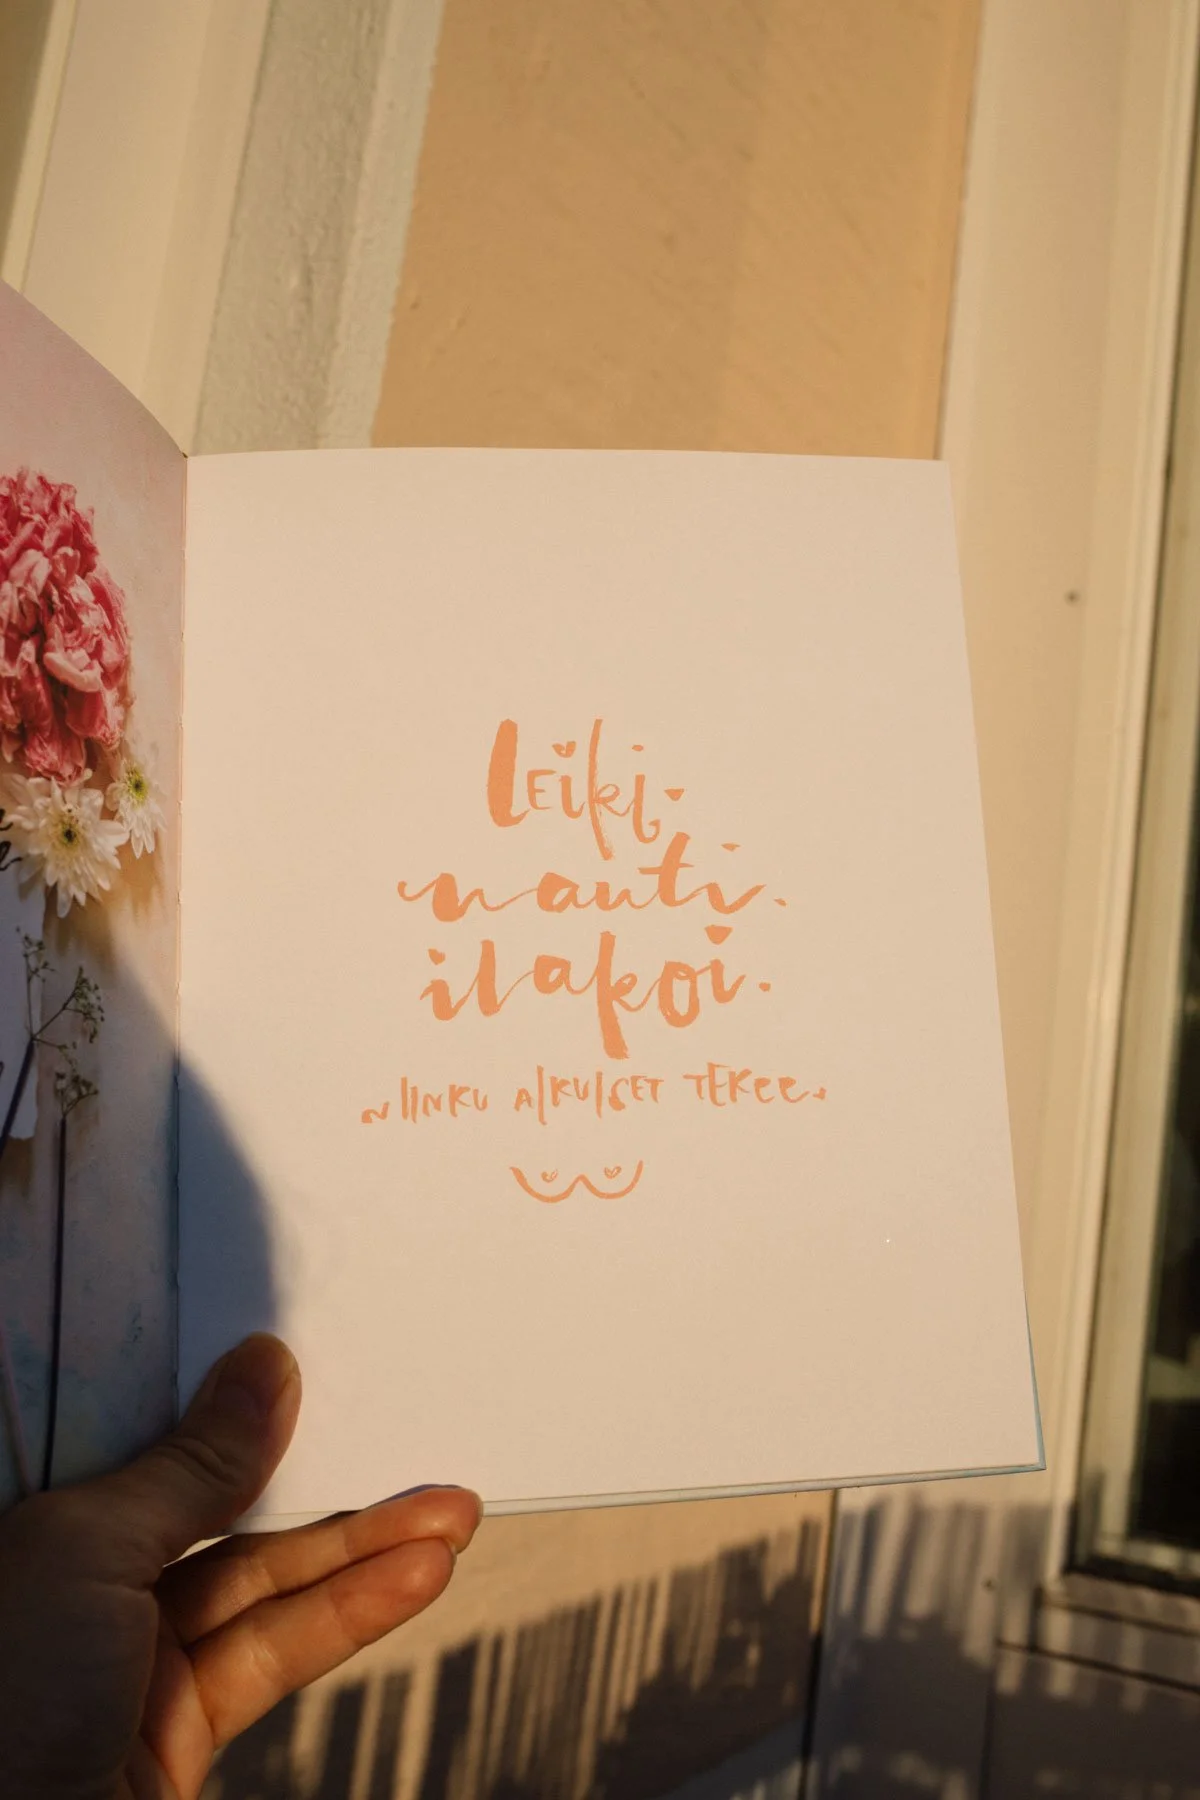 Leiki.
nauti.
ilakoi.
niinku aikuiset tekee.